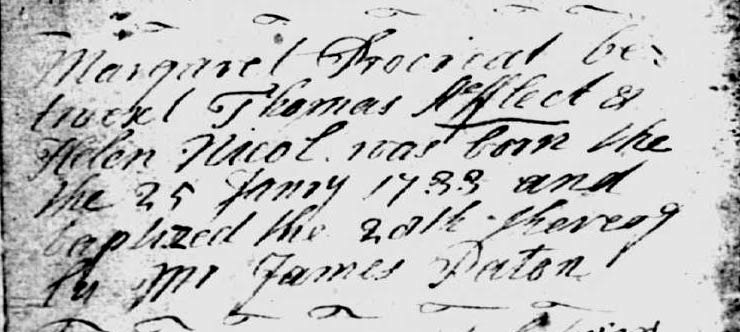 Margaret Procreat be-
twext Thomas Afflect &
Helen Nicol was born the
the 25 Janry 1733 and
baptized the 28th thereof
by Mr James Paton